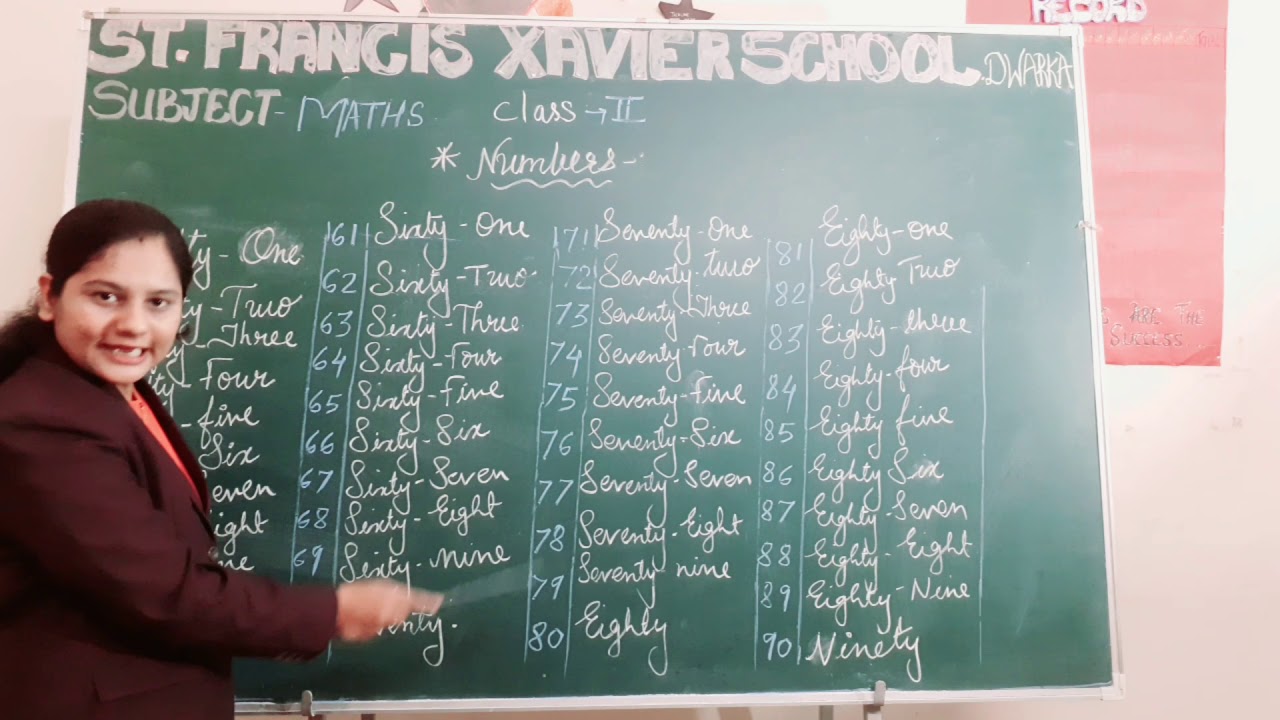 ST. FRANCIS XAVIER SCHOOL DWARKA
SUBJECT- MATHS Class → II
* Numbers-
One
Two
Three
Four
five
Six
61 Sixty-One
62 Sixty-Two
63 Sixty-Three
64 Sixty-Four
65 Sixty-Five
66 Sixty-Six
67 Sixty-Seven
68 Sixty-Eight
69 Sixty-Nine
71 Seventy-One
72 Seventy-two
73 Seventy-Three
74 Seventy-Four
75 Seventy-Five
76 Seventy-Six
77 Seventy-Seven
78 Seventy-Eight
79 Seventy nine
80 Eighty
81 Eighty-one
82 Eighty Two
83 Eighty-three
84 Eighty-four
85 Eighty five
86 Eighty Six
87 Eighty-Seven
88 Eighty-Eight
89 Eighty-Nine
90 Ninety
RECORD
ARE THE
SUCCESS